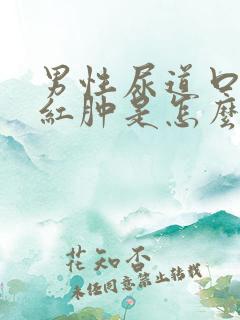 男性尿道口
紅肿是怎麼
花知否
未经同意禁止转载